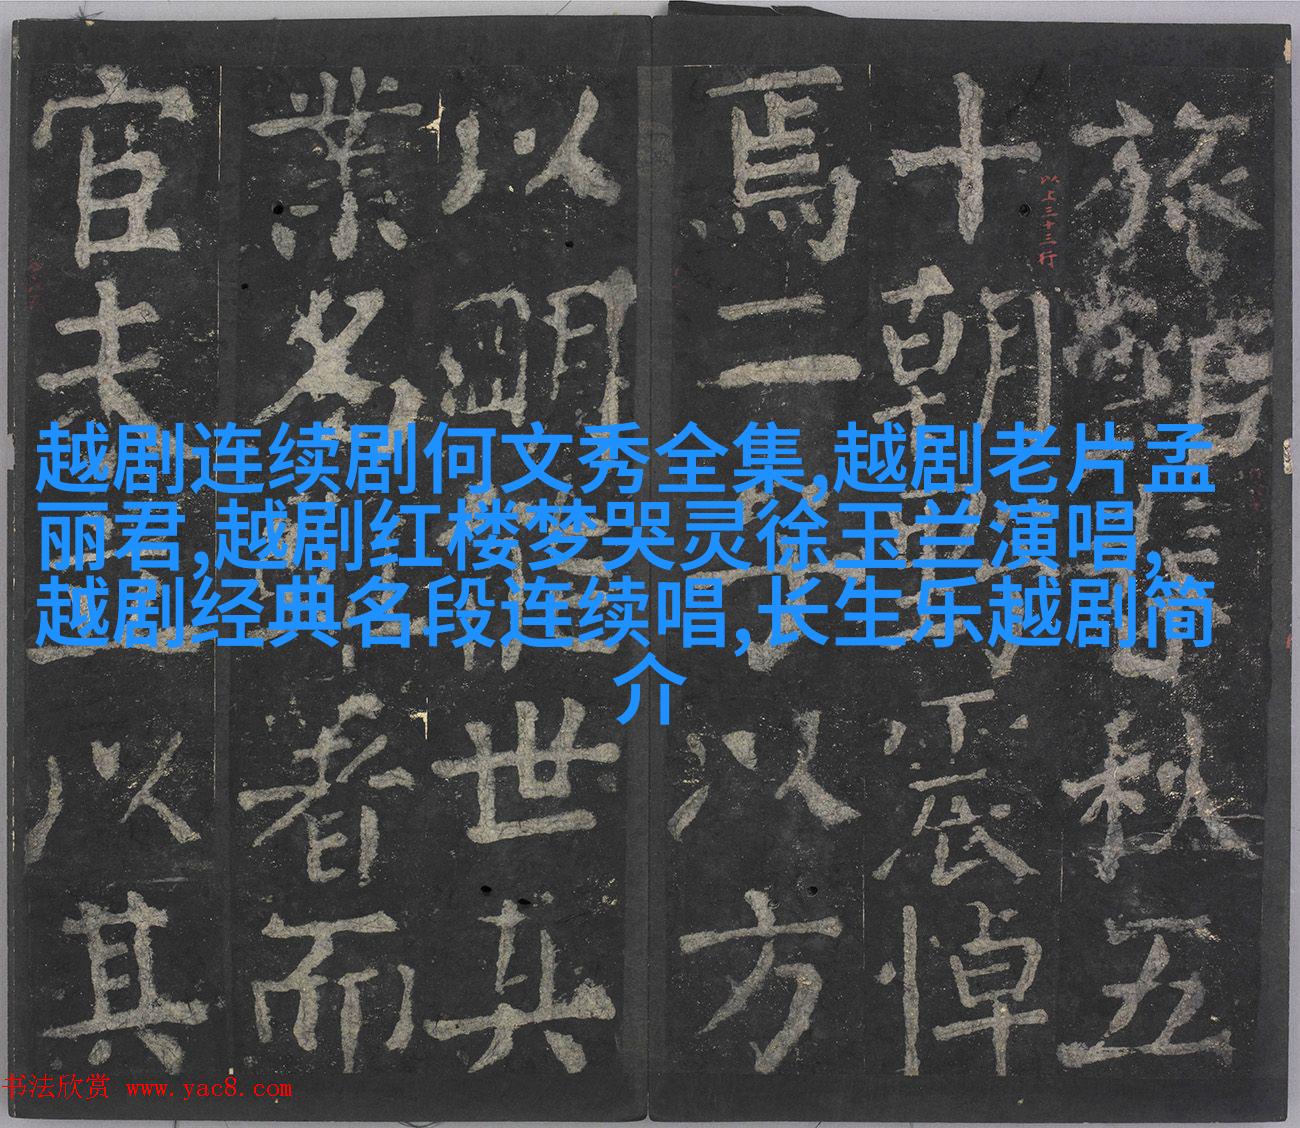 越剧连续剧何文秀全集,越剧老片孟
丽君,越剧红楼梦哭灵徐玉兰演唱,
越剧经典名段连续唱,长生乐越剧简
介
旅秋五
以上三十三行
十朝震悼
焉二以方
以明世其
業名者而
官夫以其
书法欣赏 www.yac8.com